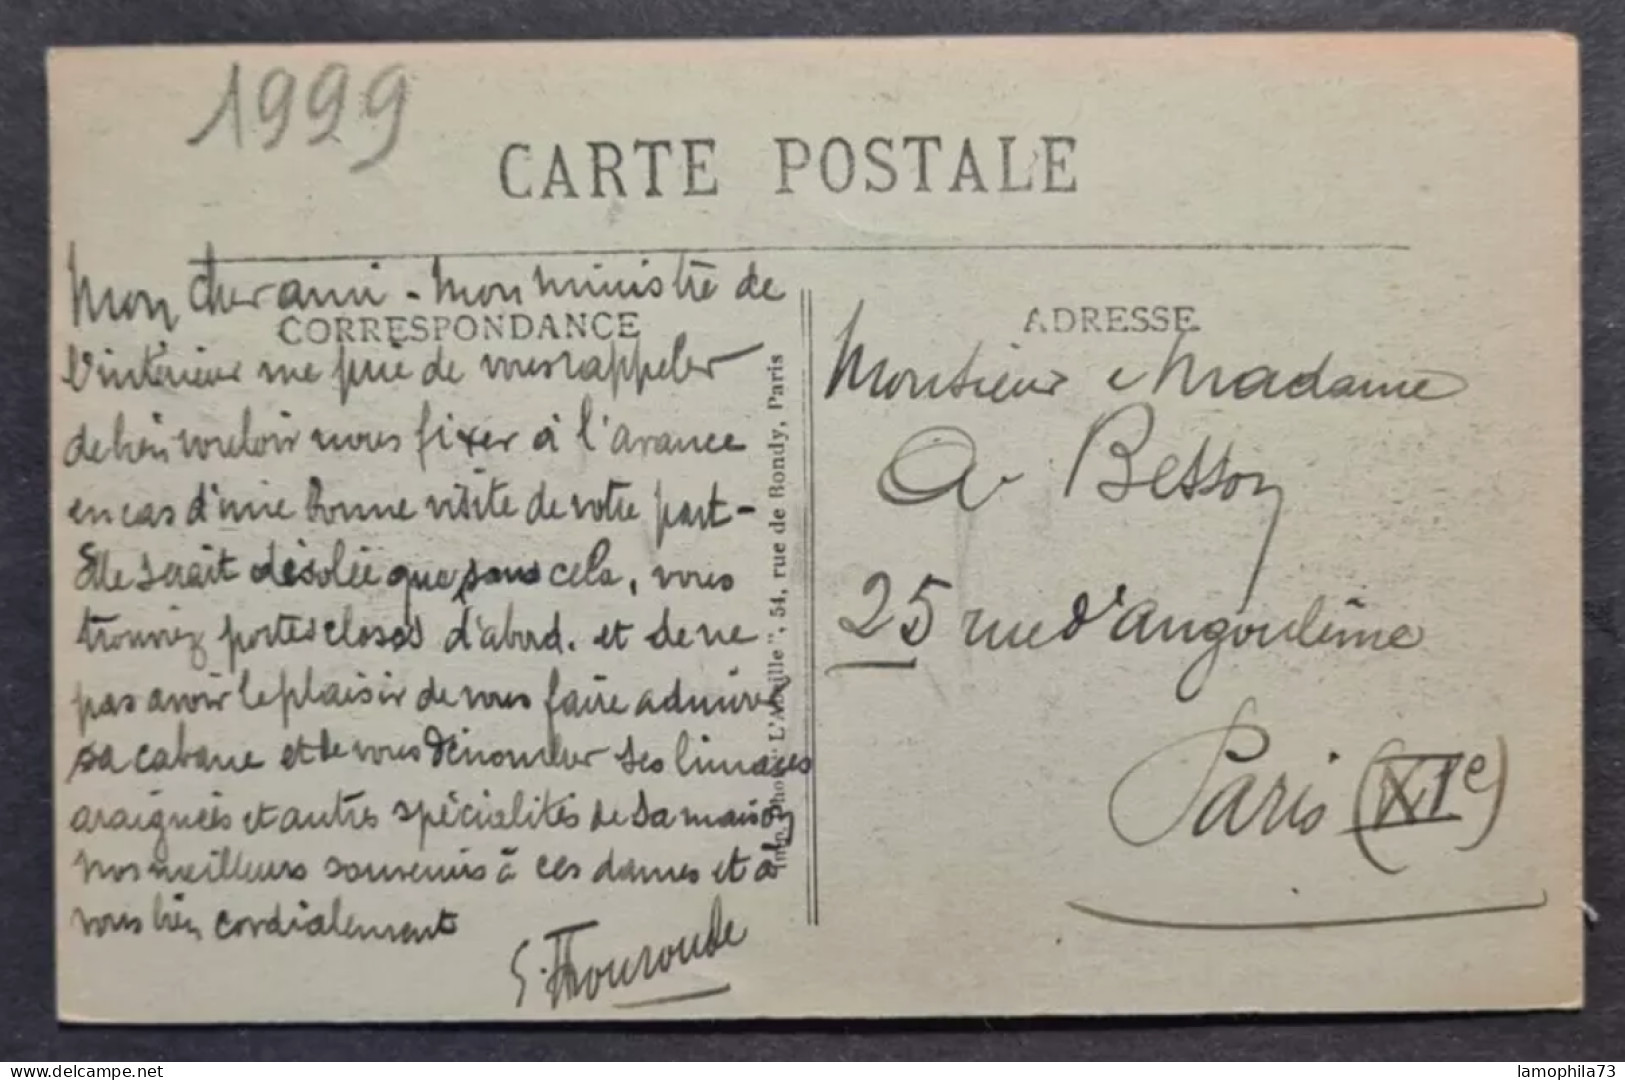 1999
CARTE POSTALE
CORRESPONDANCE
Mon cher ami - Mon ministre de
l'intérieur me prie de vous rappeler
de bien vouloir nous fixer à l'avance
en cas d'une bonne visite de votre part -
Elle serait désolée que sans cela, vous
trouviez portes closes d'abord. et de ne
pas avoir le plaisir de vous faire admirer
sa cabane et de vous dénombrer ses limaces
araignées et autres spécialités de sa maison
Nos meilleurs souvenirs à ces dames et à
vous bien cordialement
Imp. Phot. "L'Abeille", 54, rue de Bondy, Paris
ADRESSE
Monsieur & Madame
A. Besson
25 rue d'Angoulême
Paris (XIe)
lamophila73